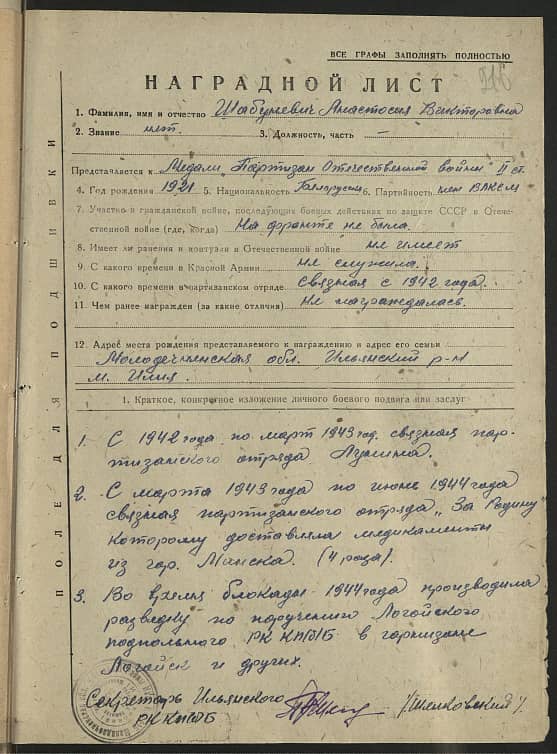 ВСЕ ГРАФЫ ЗАПОЛНЯТЬ ПОЛНОСТЬЮ
НАГРАДНОЙ ЛИСТ
1. Фамилия, имя и отчество Шабуневич Анастасия Викторовна
2. Звание нет. 3. Должность, часть —
Представляется к Медали „Партизан Отечественной войны" II ст.
4. Год рождения 1921 5. Национальность Белоруссия 6. Партийность член ВЛКСМ
7. Участие в гражданской войне, последующих боевых действиях по защите СССР в Отече-
ственной войне (где, когда) На фронте не была.
8. Имеет ли ранения и контузии в Отечественной войне не имеет
9. С какого времени в Красной Армии не служила.
10. С какого времени в партизанском отряде связная с 1942 года.
11. Чем ранее награжден (за какие отличия) Не награждалась.
12. Адрес места рождения представляемого к награждению и адрес его семьи
Молодечненская обл. Ильянский р-н
м. Илия.
1. Краткое, конкретное изложение личного боевого подвига или заслуг
1. С 1942 года по март 1943 год. связная пар-
тизанского отряда Лунина.
2. С марта 1943 года по июнь 1944 года
связная партизанского отряда „За Родину
которому доставляла медикаменты
из гор. Минска. (4 раза).
3. Во время блокады 1944 года производила
разведку по поручению Логойского
подпольного РК КП(б)Б в гарнизоне
Логойск и других.
Секретарь Ильянского
РК КП(б)Б
ПОЛЕ ДЛЯ ПОДШИВКИ